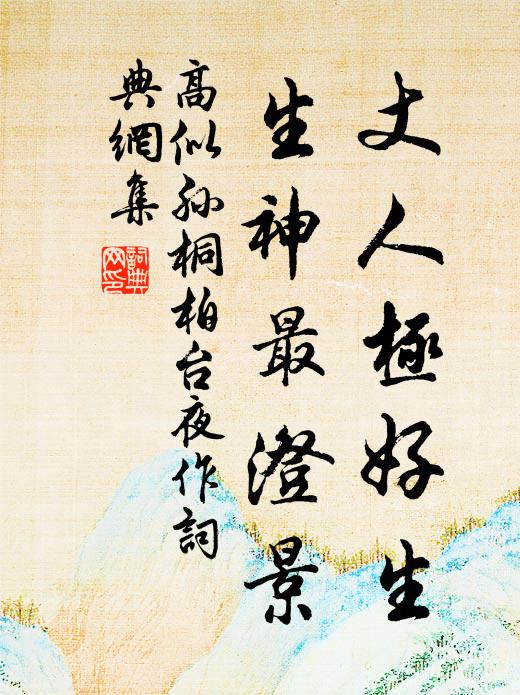 丈人極好生
生神最澄景
高似孙桐柏台夜作詞
典網集
詞典
网印